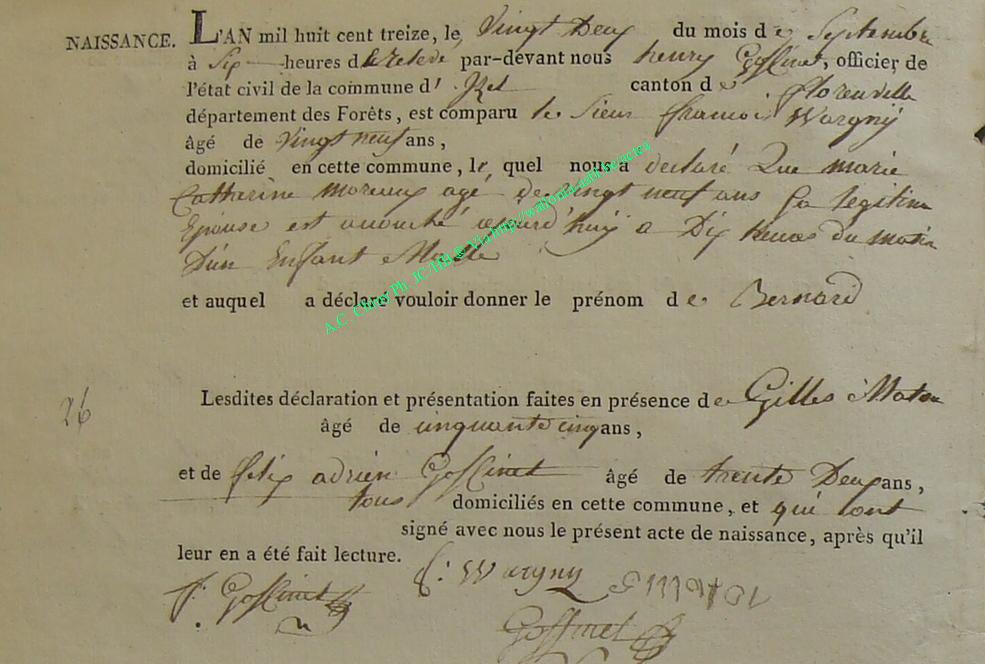 NAISSANCE. L'AN mil huit cent treize, le, Vingt Deux du mois de Septembre
à Six heures d par-devant nous henry Goffinet, officier de
l'état civil de la commune d' Izel canton de florenville
département des Forêts, est comparu le Sieur francois Wargny
âgé de vingt neuf ans,
domicilié en cette commune, le quel nous a declaré Que marie
Catherine moreaux agé de vingt neuf ans Sa legitime
Epouse est acouché aujourd'huy a Dix heures du matin
D'un Enfant Male
et auquel a déclaré vouloir donner le prénom de Bernard
A.C. Chiny Ph. JC/HB © Via http://wallonia-asbl.be/actes
Lesdites déclaration et présentation faites en présence de Gilles
26
âgé de cinquante cinq ans,
et de felix adrien Goffinet âgé de trente Deux ans,
tous domiciliés en cette commune, et qui ont
signé avec nous le présent acte de naissance, après qu'il
leur en a été fait lecture.
f: Wargny
f. Goffinet
Goffinet